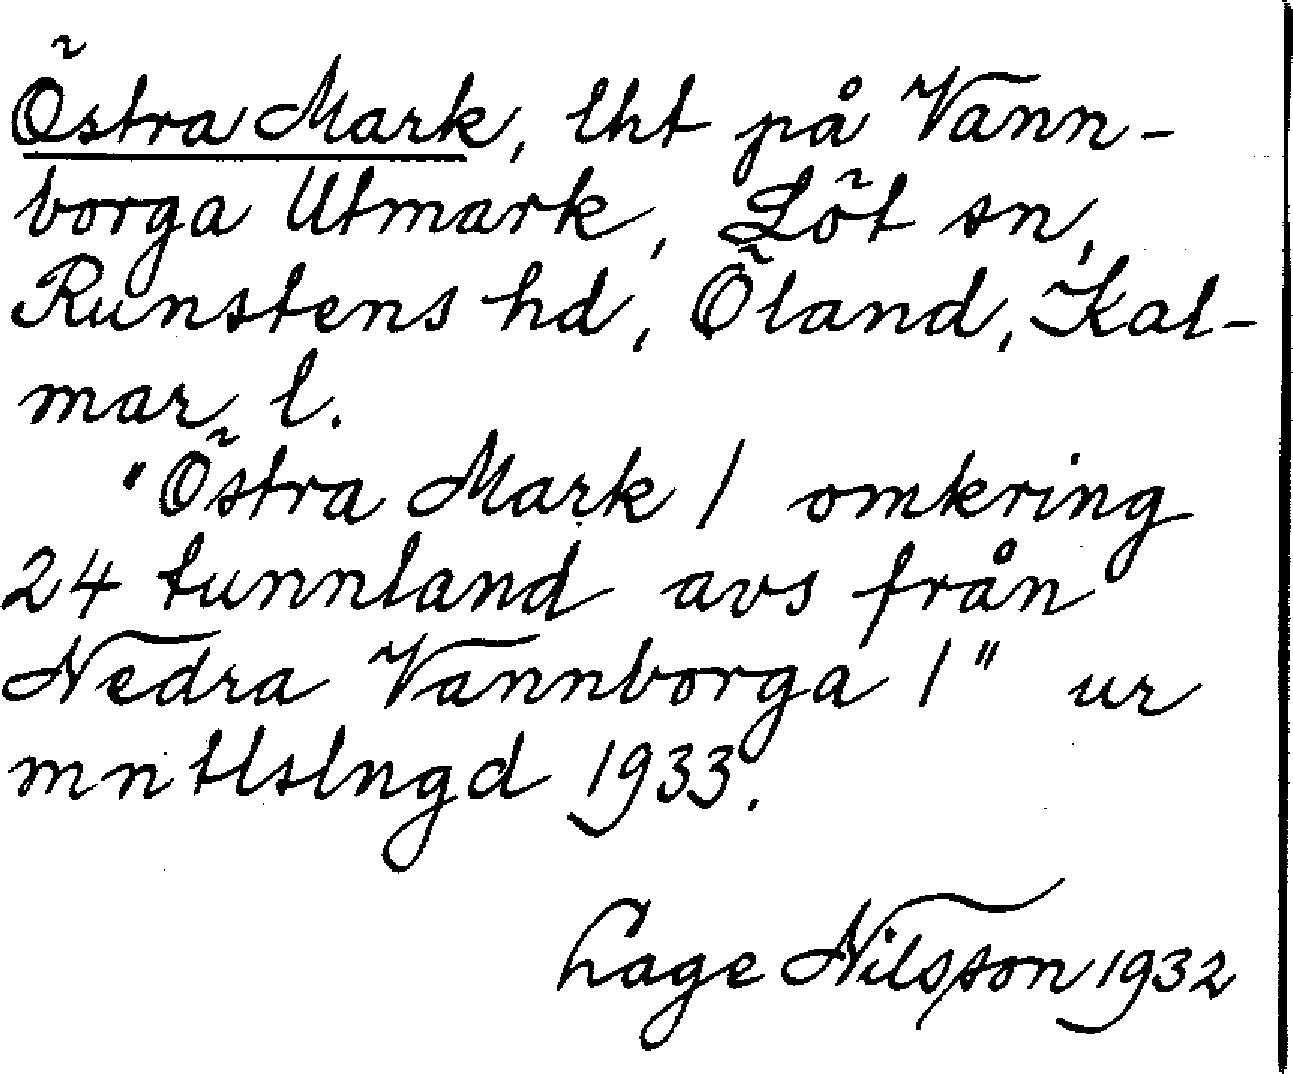 Östra Mark, lht på Vann-
borga Utmark, Löt sn,
Runstens hd, Öland, Kal-
mar l.
"Östra Mark / omkring
24 tunnland avs från
Nedra Vannborga /" ur
mntlslngd 1933.
Lage Nilsson 1932